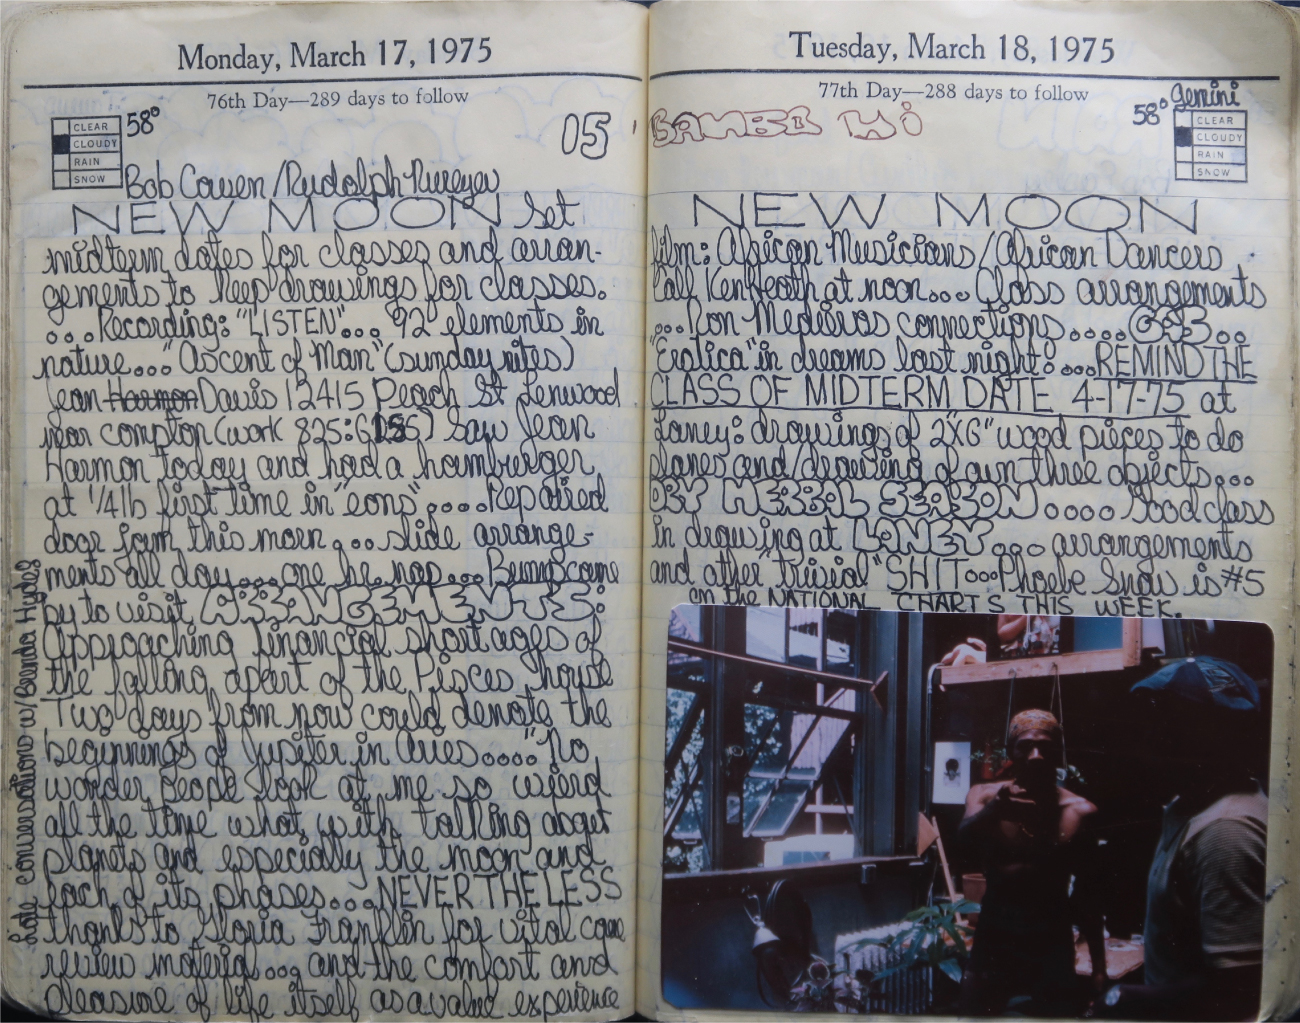 Monday, March 17, 1975
76th Day—289 days to follow
CLEAR
CLOUDY
RAIN
SNOW
58°
05
Bob Cowen/Rudolph
NEW MOON Set
midterm dates for classes and arran-
gements to keep drawings for classes.
...Recording: "LISTEN"... 92 elements in
nature..."Ascent of Man" (sunday nites)
Jean Harmon Davis 12415 Peach St Lenwood
near compton (work 825: Saw Jean
Harmon today and had a hamburger
at 1/4 lb first time in "eons"....Repaired
door jam this morn...slide arrange-
ments all day...one hr. nap...Bump came
by to visit
Approaching financial shortages of
the falling apart of the Pisces house
Two days from now could denote the
beginnings of Jupiter in Aries...."No
wonder people look at me so wierd
all the time what with talking about
planets and especially the moon and
each of its phases...NEVERTHELESS
thanks to Gloria Franklin for vital
review material... and the comfort and
pleasure of life itself as a value experience
Late conversations w/Brenda Hydes
Tuesday, March 18, 1975
77th Day—288 days to follow
58° Gemini
CLEAR
CLOUDY
RAIN
SNOW
NEW MOON
film: African Musicians/African Dancers
Call Ken Heath at noon... Class arrangements
...Ron Medeiros connections....
"Exotica" in dreams last night!...REMIND THE
CLASS OF MIDTERM DATE 4-17-75 at
Laney: drawings of 2X6" wood pieces to do
planes and/drawing of own three objects...
DRY HERBAL SEASON .... Good class
in drawing at LANEY ... arrangements
and other "trivial" SHIT...Phoebe Snow is #5
on the NATIONAL CHARTS THIS WEEK.